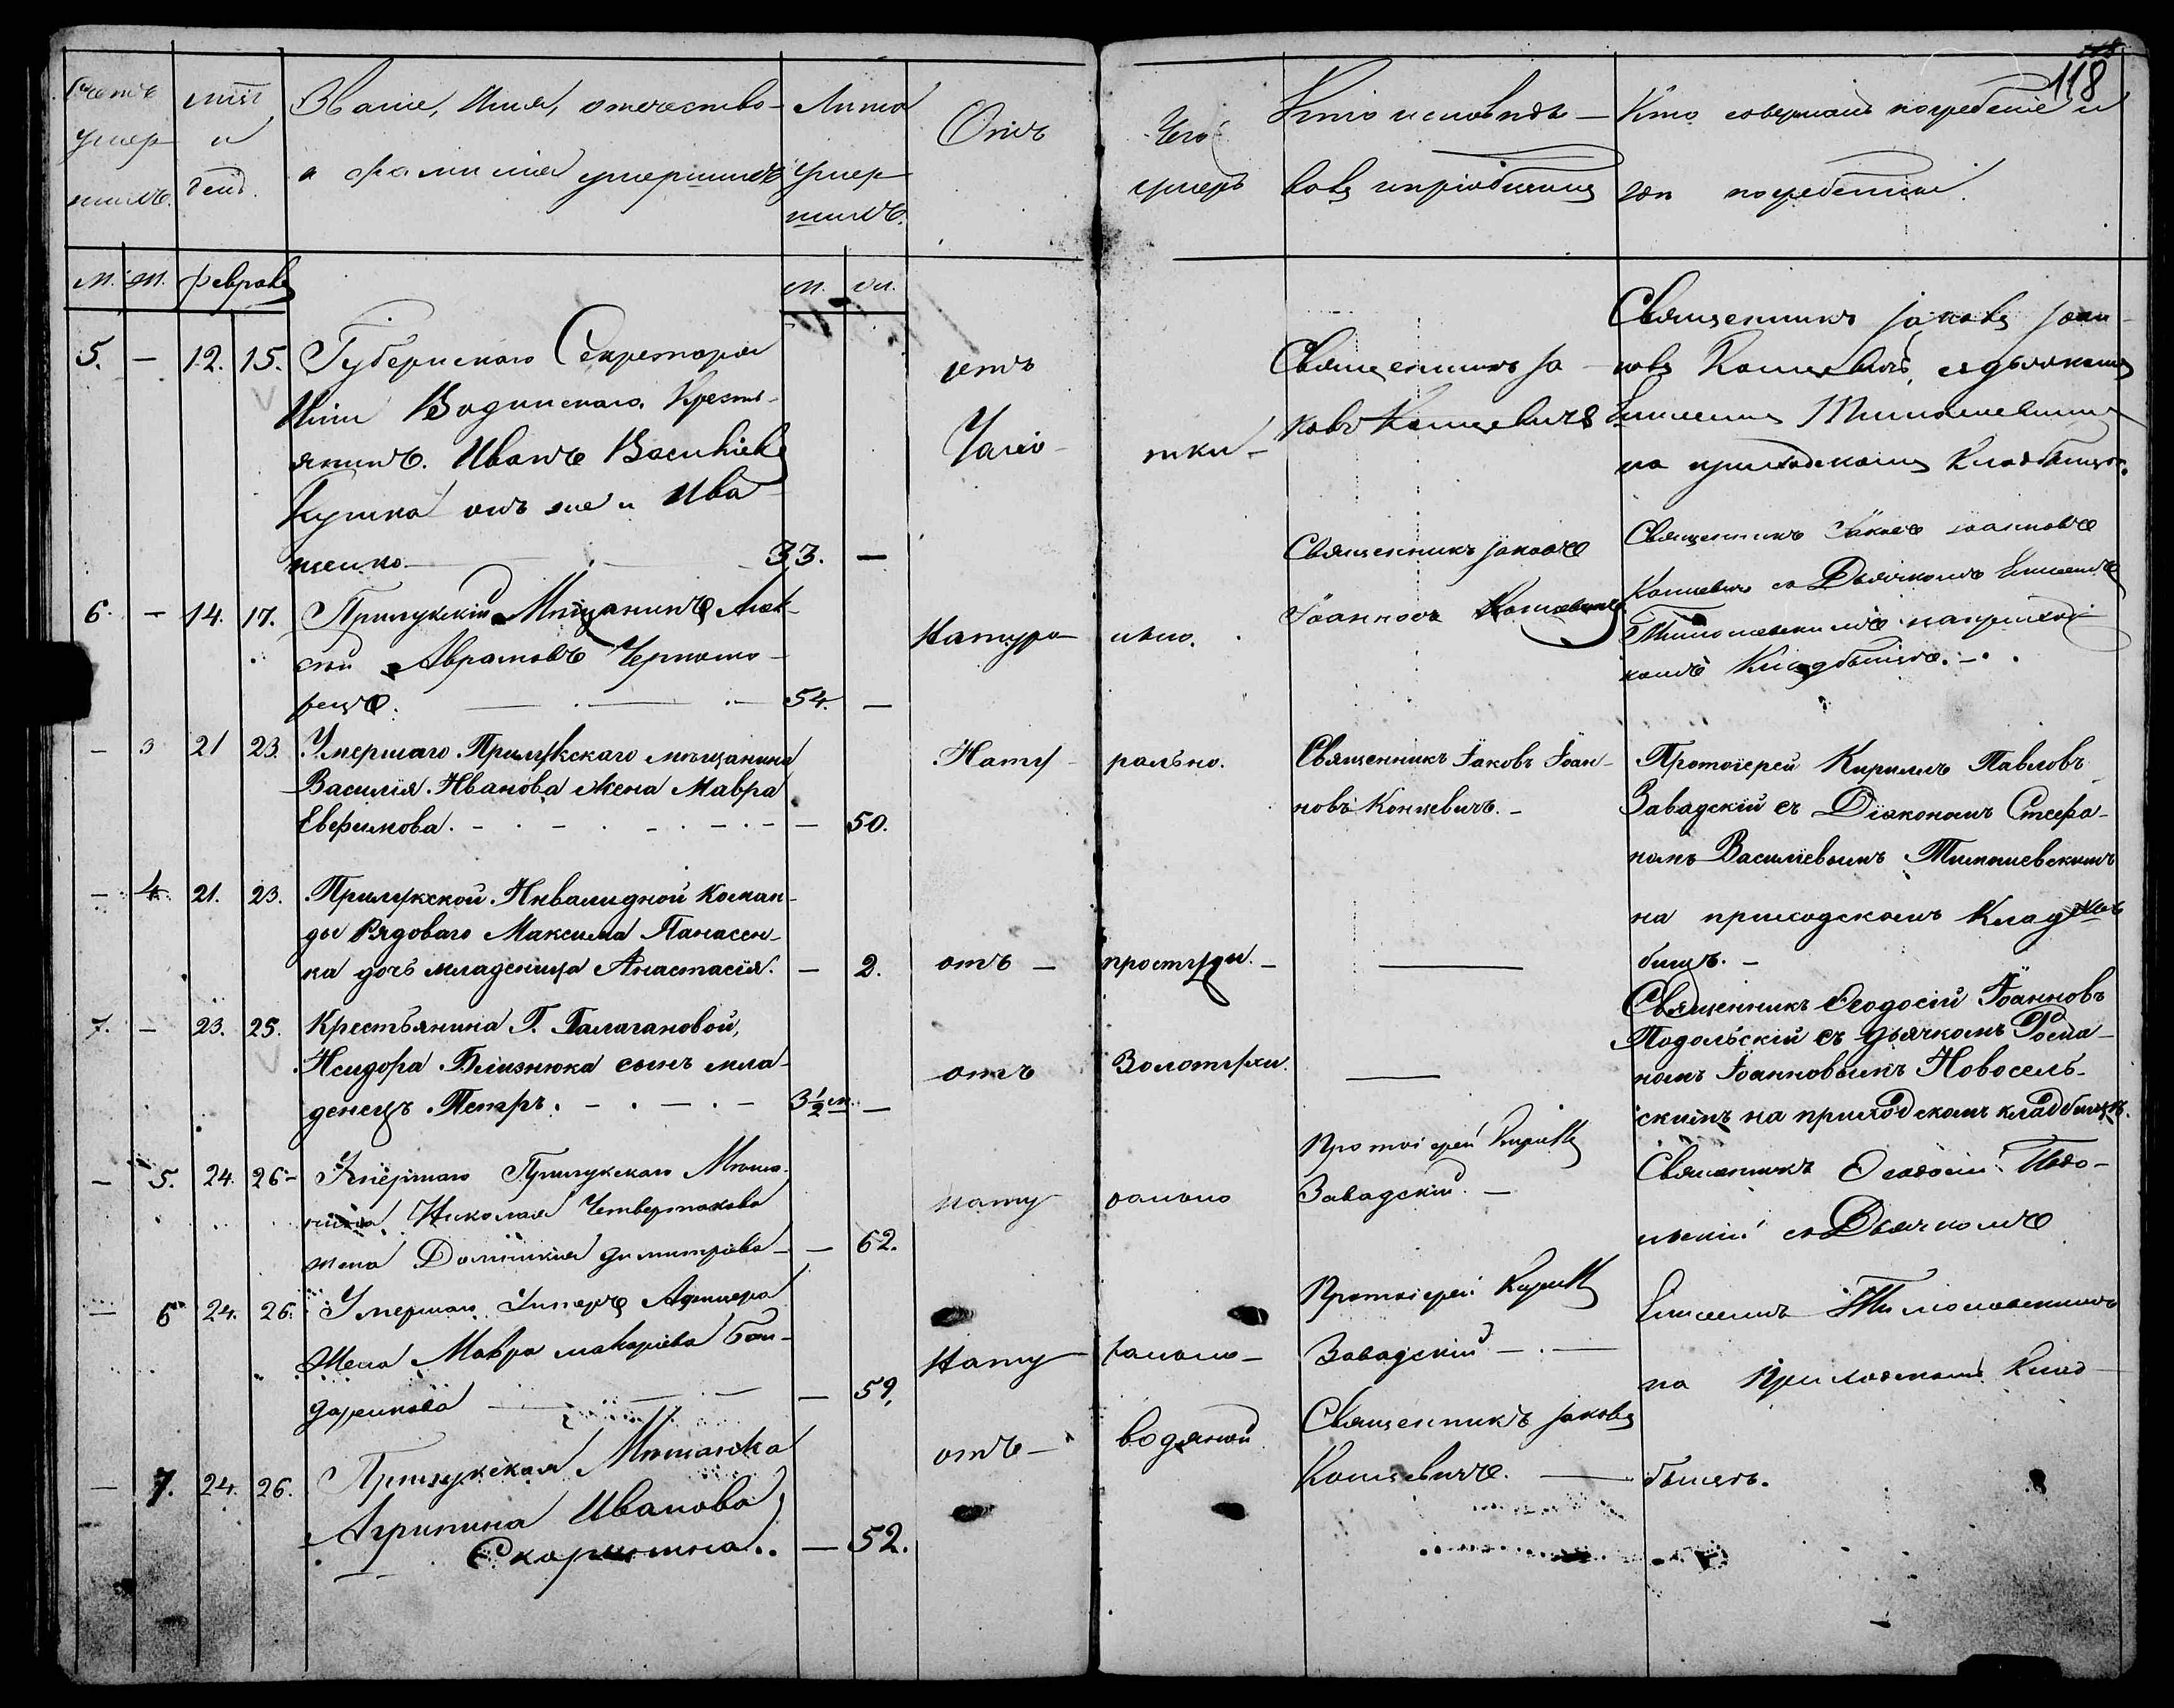 118
Счетъ умер шихъ.
мѣсяц и день.
Званіе, Имя, отечество
и фамилія умершихъ
Лита умер шихъ.
Отъ
Чего умеръ
Кто исповѣды
валъ и пріобщилъ
Кто совершалъ погребеніе и
гдѣ погребены.
М. Ж. Февраль
М. Ж.
5. — 12. 15. Губернскаго Секретаря
Водинскаго, Кресть
янинъ Иванъ Васильевъ
онъ же и Ива
щенко 33. —
отъ Чахо тки
Священникъ Іа
ковъ Концевичъ
Священникъ Іаковъ Іоан
новъ Концевичъ, съ дьячкомъ
Елисеемъ Тимошевскимъ
на приходскомъ Кладбищѣ.
6. — 14. 17. Прилукскій Мѣщанинъ Алек
сѣй Аврамовъ Черномо
рецъ. 54. —
Натура льно.
Священникъ Іаковъ
Іоанновъ Концевичъ
Священникъ Іаковъ Іоанновъ
Концевичъ съ Дьячкомъ Елисеемъ
Тимошевскимъ на приход
комъ Кладбищѣ.
— 3 21 23. Умершаго Прилукскаго мѣщанина
Василія Иванова жена Мавра
Еверимова. — 50.
Нату рально.
Священникъ Іаковъ Іоан-
новъ Концевичъ. —
Протоіерей Кириллъ Павловъ
Завадскій съ Діакономъ Стефа-
номъ Василіевымъ Тимошевскимъ
на приходскомъ Клад
бищѣ. —
— 4. 21. 23. Прилукской Инвалидной Коман-
ды Рядоваго Максима Панасен-
ка дочь младеница Анастасія. — 2.
отъ — простуди. —
7. — 23. 25. Крестьянина Г. Галагановой,
Исидора Близнюка сынъ мла-
денецъ Петръ. 3 1/2 м. —
отъ Золотухи.
Священникъ Ѳеодосій Іоанновъ
Подольскій съ дьячкомъ Рома-
номъ Іоанновымъ Новосель-
скимъ на приходскомъ кладбищѣ.
— 5. 24. 26 Умершаго Прилукскаго Мѣща
нина Николая Четвертакова
жена Домникия Димитрова — 62.
нату рально
Протоіерей Кириллъ
Завадскій. —
Священникъ Ѳеодосій Подо-
льскій съ Дьячкомъ
— 6 24. 26. Умершаго Унтеръ Афицера
Жена Мавра Макарiева Бон-
даренкова — 59.
Нату рально —
Протоіерей Кириллъ
Завадскій —
Елисеемъ Тимошевскимъ
на Приходскомъ Клад
бищѣ.
— 7. 24. 26. Прилукская Мѣщанка
Агрипина Иванова
— 52.
отъ — водяной
Священникъ Іаковъ
Концевичъ. —